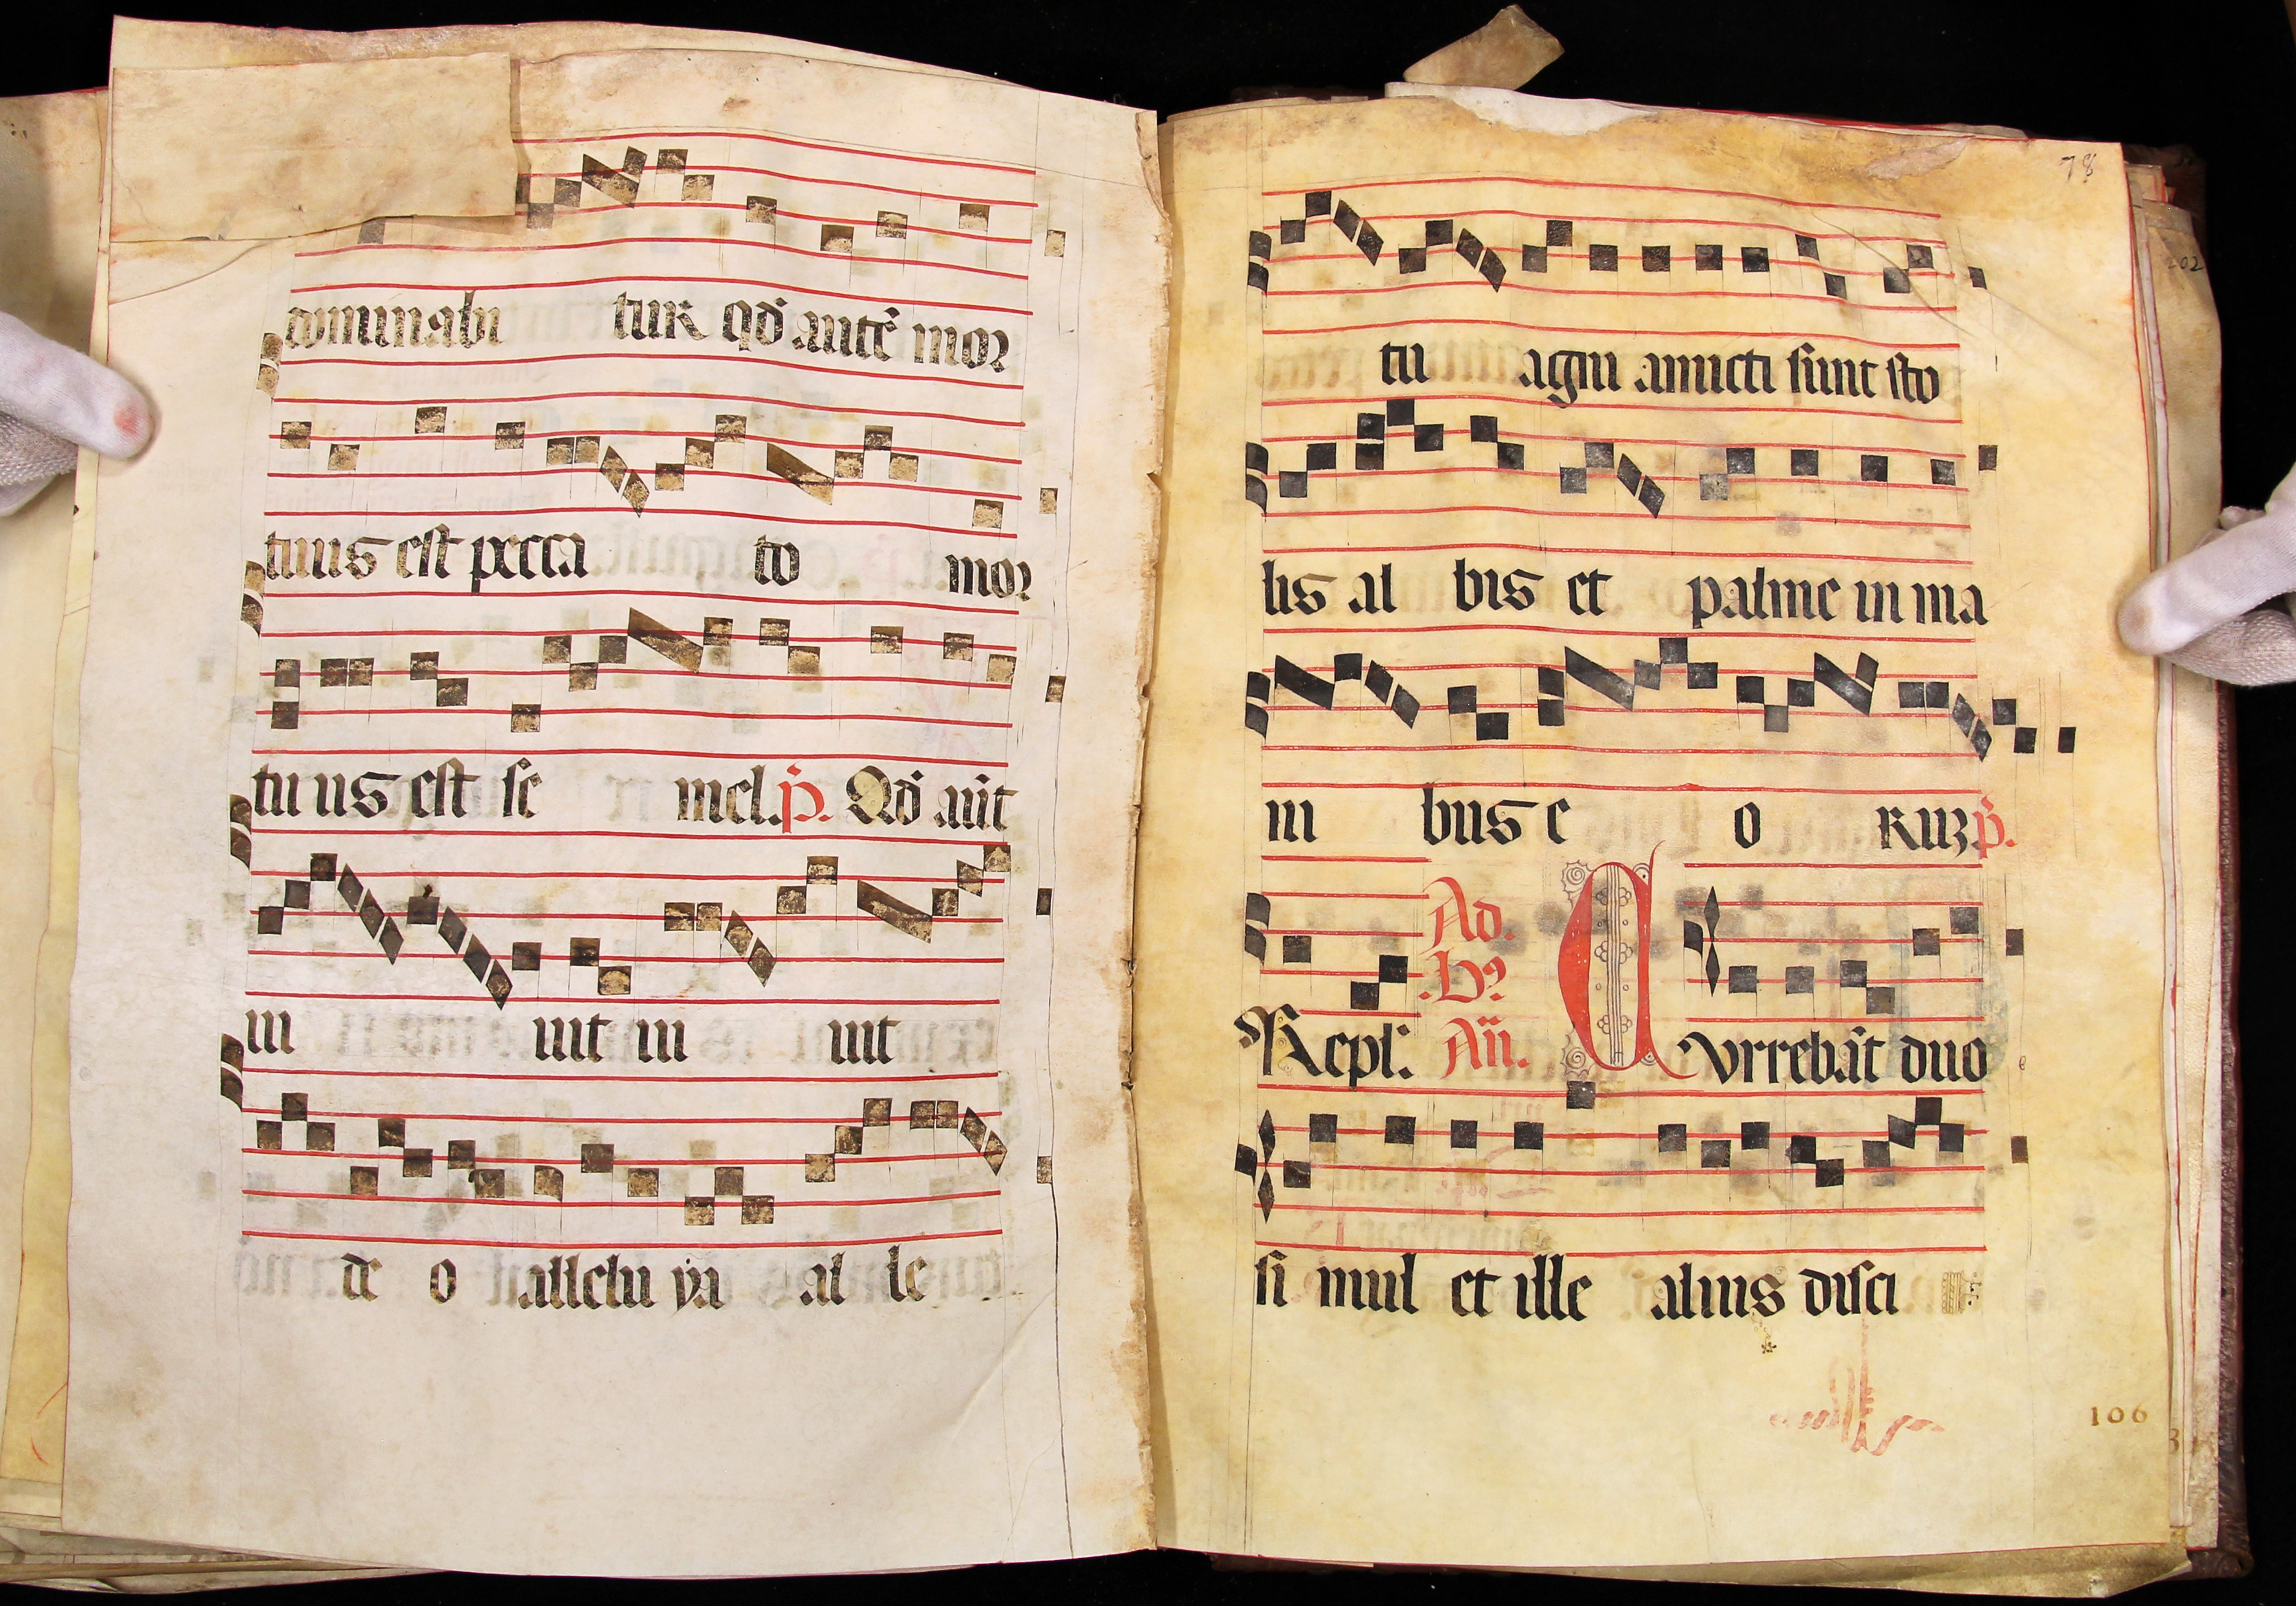 dominabi tur qd̄ autē mor
tuus est pecca to mor
tu us est se mel. p̄. Qd̄ aūt
ui uit ui uit
de o allelu ya al le
78
tu agni amicti sunt sto
lis al bis et palme in ma
ni bus e o ruꝫ p̄.
Repl̄. Ad. Bꝰ. Añ. Currebāt duo
si mul et ille alius disci
106
202